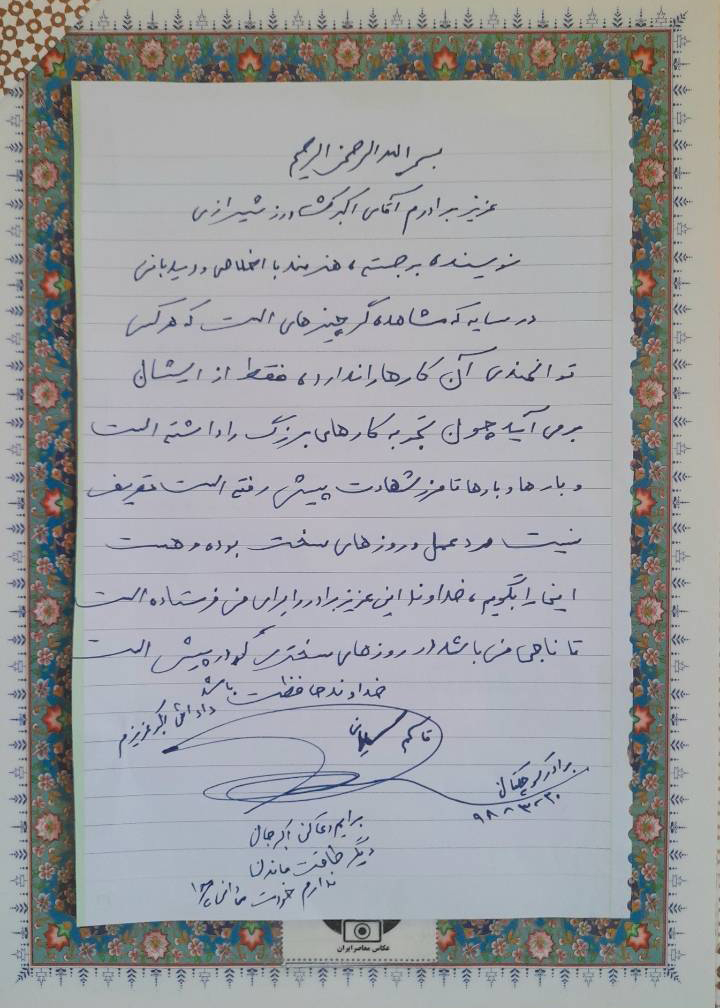 بسم الله الرحمن الرحیم
عزیز برادرم آقای اکبر کشاورز شیرازی
نویسنده برجسته، هنرمند با اخلاص و دیدبانی
در سایه که مشاهده گر چیزهای است که هر کسی
توانمندی آن کارها را ندارد، فقط از ایشان
برمی آید چون تجربه کارهای بزرگ را داشته است
و بارها و بارها تا مرز شهادت پیش رفته است تعریف
نیست مرد عمل و روزهای سخت بوده و هست
اینجا را بگویم، خداوند این عزیز برادر را برای من فرستاده است
تا ناجی من باشد در روزهای سختری که در پیش است
خداوند حافظت باشد
داداش اکبر عزیزم
قاسم سلیمانی
برادر کوچکتان
۹۸-۳-۲۰
برایم دعا کن اکبر جان
دیگر طاقت ماندن
ندارم خودت میدانی
عکاس معاصر ایران